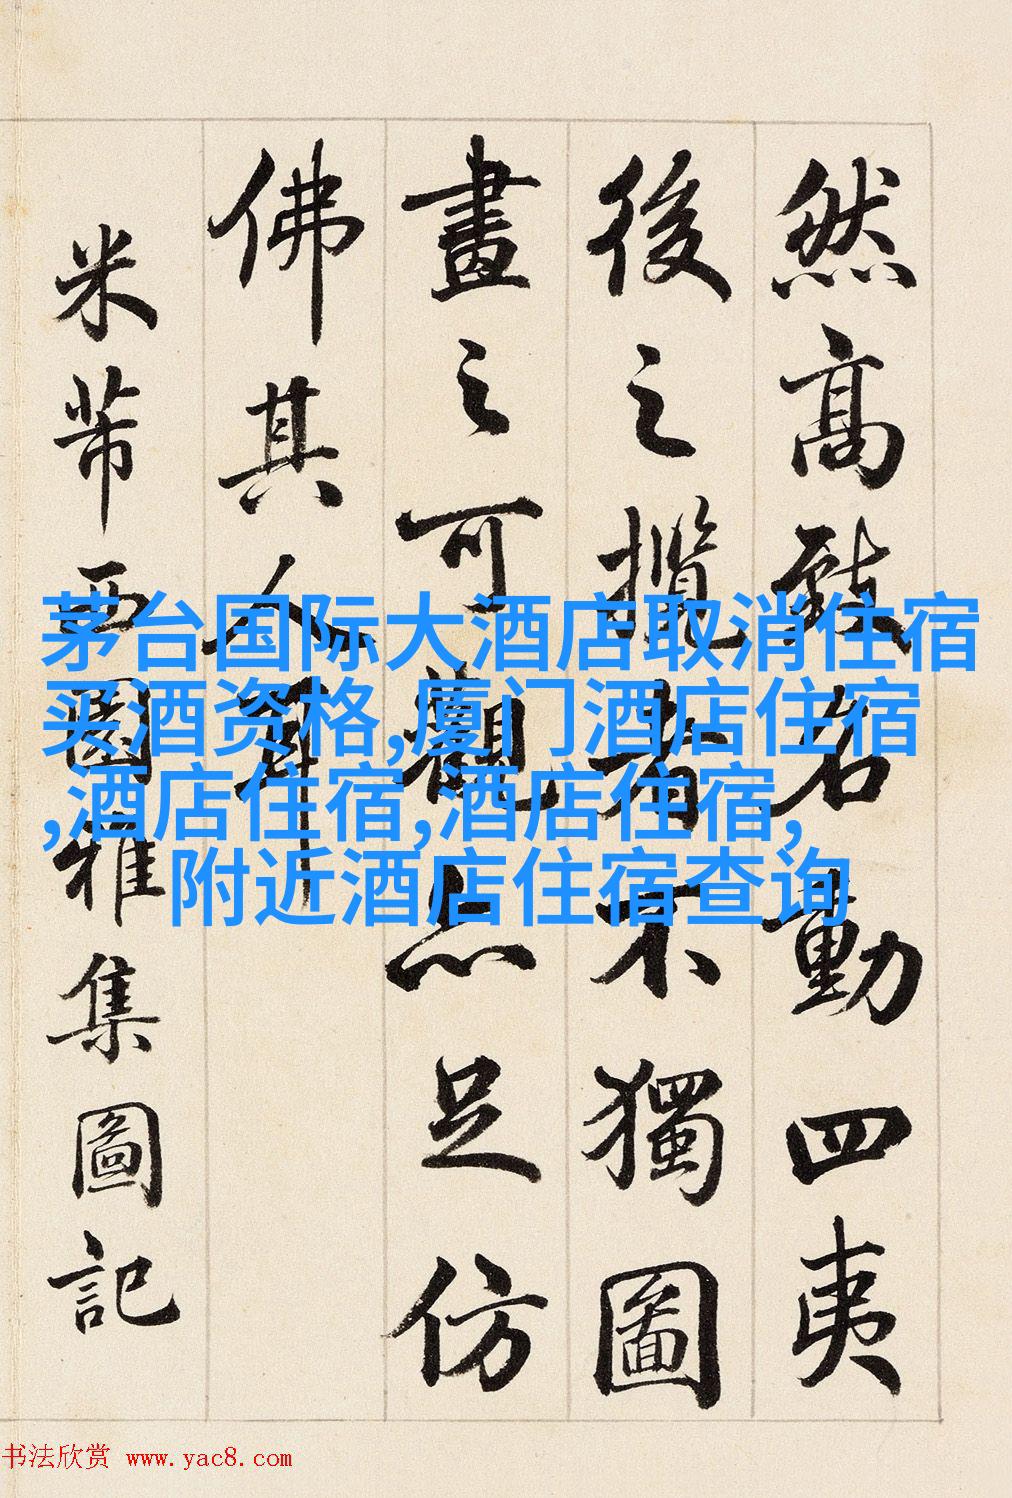 然高致名動四夷
後之攬者不獨圖
畫之可觀亦足仿
佛其人耳
米芾西園雅集圖記
茅台国际大酒店取消住宿
买酒资格,厦门酒店住宿
,酒店住宿,酒店住宿,
附近酒店住宿查询
书法欣赏 www.yac8.com